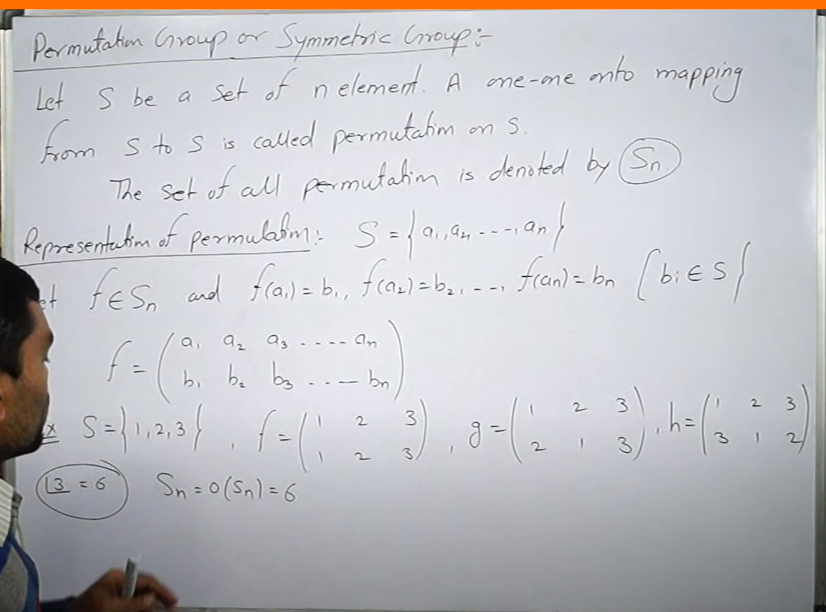 Permutation Group or Symmetric Group :-
Let S be a set of n element. A one-one onto mapping
from S to S is called permutation on S.
The set of all permutation is denoted by Sn.
Representation of permutation :- S = {a1, a2, ----, an}
et f ∈ Sn and f(a1) = b1, f(a2) = b2, ---, f(an) = bn {bi ∈ S}
f = ( a1 a2 a3 ---- an
b1 b2 b3 ---- bn )
Ex S = {1, 2, 3}, f = ( 1 2 3 ), g = ( 1 2 3 ), h = ( 1 2 3 )
( 1 2 3 ) ( 2 1 3 ) ( 3 1 2 )
⌊3 = 6 Sn = O(Sn) = 6